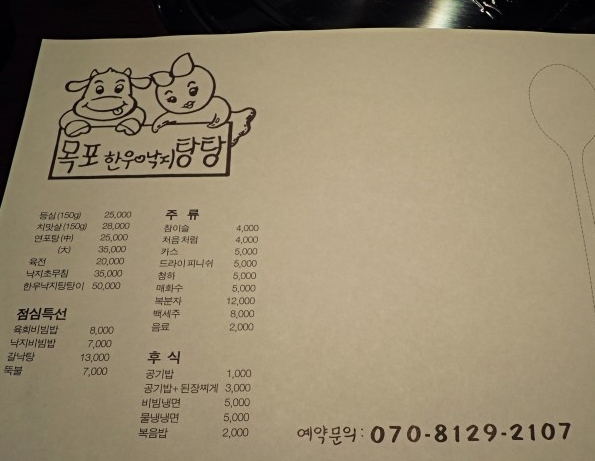 목포 한우낙지탕탕
등심 (150g) 25,000
치맛살 (150g) 28,000
연포탕 (中) 25,000
(大) 35,000
육전 20,000
낙지초무침 35,000
한우낙지탕탕이 50,000
점심특선
육회비빔밥 8,000
낙지비빔밥 7,000
갈낙탕 13,000
뚝불 7,000
주 류
참이슬 4,000
처음처럼 4,000
카스 5,000
드라이피니쉬 5,000
청하 5,000
매화수 5,000
복분자 12,000
백세주 8,000
음료 2,000
후 식
공기밥 1,000
공기밥+된장찌게 3,000
비빔냉면 5,000
물냉냉면 5,000
볶음밥 2,000
예약문의: 070-8129-2107